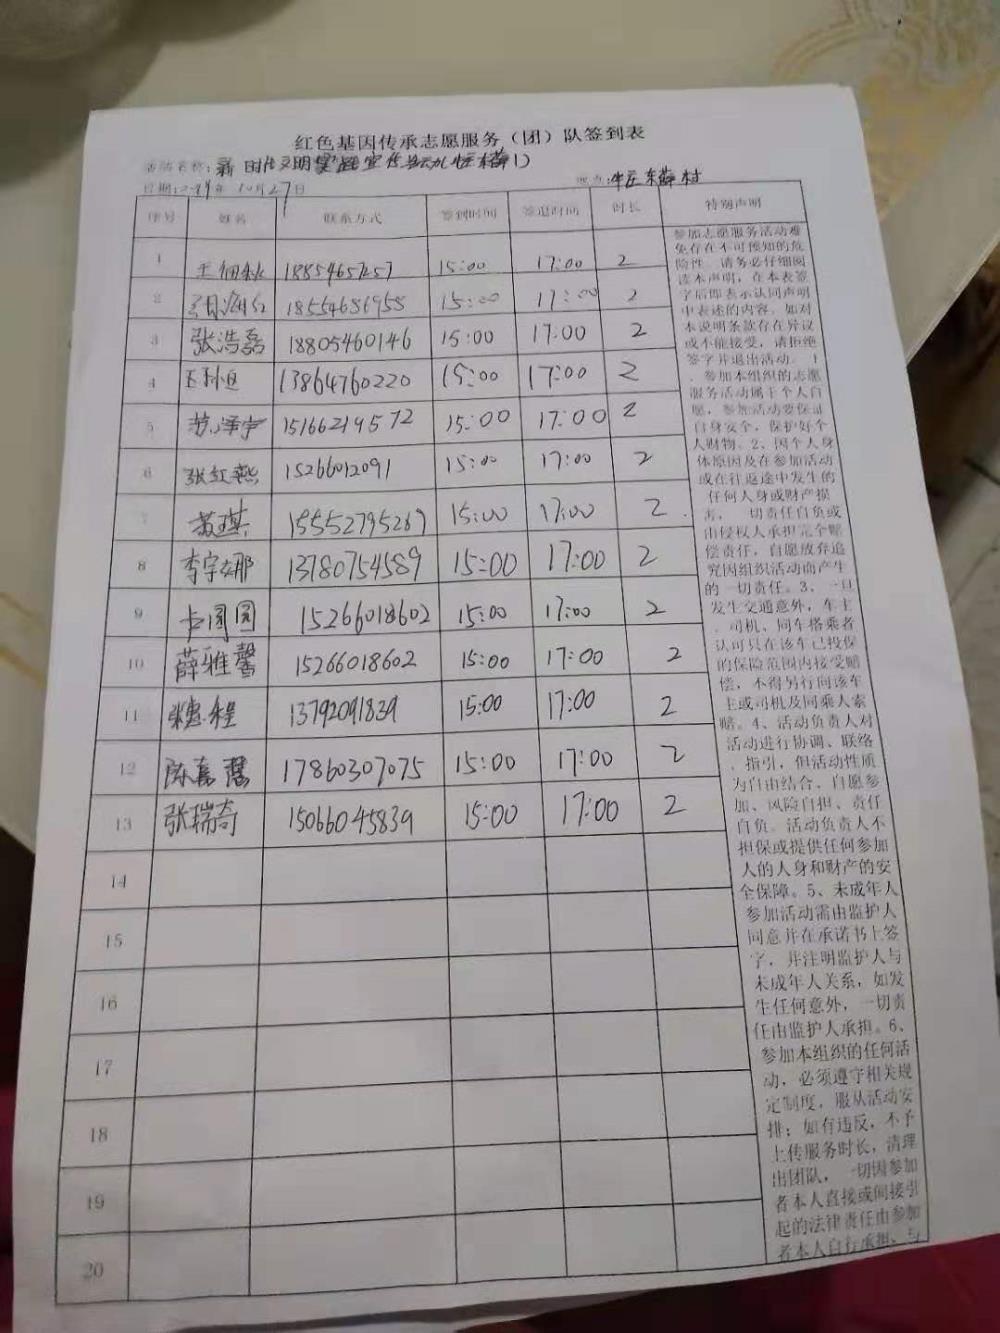 红色基因传承志愿服务（团）队签到表
活动名称：新时代文明实践宣传活动
日期：2019年10月27日 地点：牛庄东薛村
序号 姓名 联系方式 签到时间 签退时间 时长 特别声明
1 18854657257 15:00 17:00 2
2 18554686958 15:00 17:00 2
3 张浩磊 18805460146 15:00 17:00 2
4 13864760220 15:00 17:00 2
5 范泽宇 15166219572 15:00 17:00 2
6 张红燕 15266012091 15:00 17:00 2
7 15552795269 15:00 17:00 2
8 李宇娜 13780754589 15:00 17:00 2
9 圆圆 15266018602 15:00 17:00 2
10 薛雅馨 15266018602 15:00 17:00 2
11 张惠程 13792091839 15:00 17:00 2
12 陈嘉慧 17860307075 15:00 17:00 2
13 张瑞奇 15066045839 15:00 17:00 2
14
15
16
17
18
19
20
参加志愿服务活动难
免存在不可预知的危
险性。请务必仔细阅
读本声明，在本表签
字后即表示认同声明
中表述的内容。如对
本说明条款存在异议
或不能接受，请拒绝
签字并退出活动。1
、参加本组织的志愿
服务活动属于个人自
愿，参加活动要保证
自身安全，保护好个
人财物。2、因个人身
体原因及在参加活动
或在往返途中发生的
任何人身或财产损
害，一切责任自负或
由侵权人承担完全赔
偿责任，自愿放弃追
究因组织活动而产生
的一切责任。3、一旦
发生交通意外，车主
、司机、同车搭乘者
认可只在该车已投保
的保险范围内接受赔
偿，不得另行向该车
主或司机及同乘人索
赔。4、活动负责人对
活动进行协调、联络
、指引，但活动性质
为自由结合、自愿参
加、风险自担、责任
自负。活动负责人不
担保或提供任何参加
人的人身和财产的安
全保障。5、未成年人
参加活动需由监护人
同意并在承诺书上签
字，并注明监护人与
未成年人关系，如发
生任何意外，一切责
任由监护人承担。6、
参加本组织的任何活
动，必须遵守相关规
定制度，服从活动安
排；如有违反，不予
上传服务时长，清理
出团队，一切因参加
者本人直接或间接引
起的法律责任由参加
者本人自行承担，与